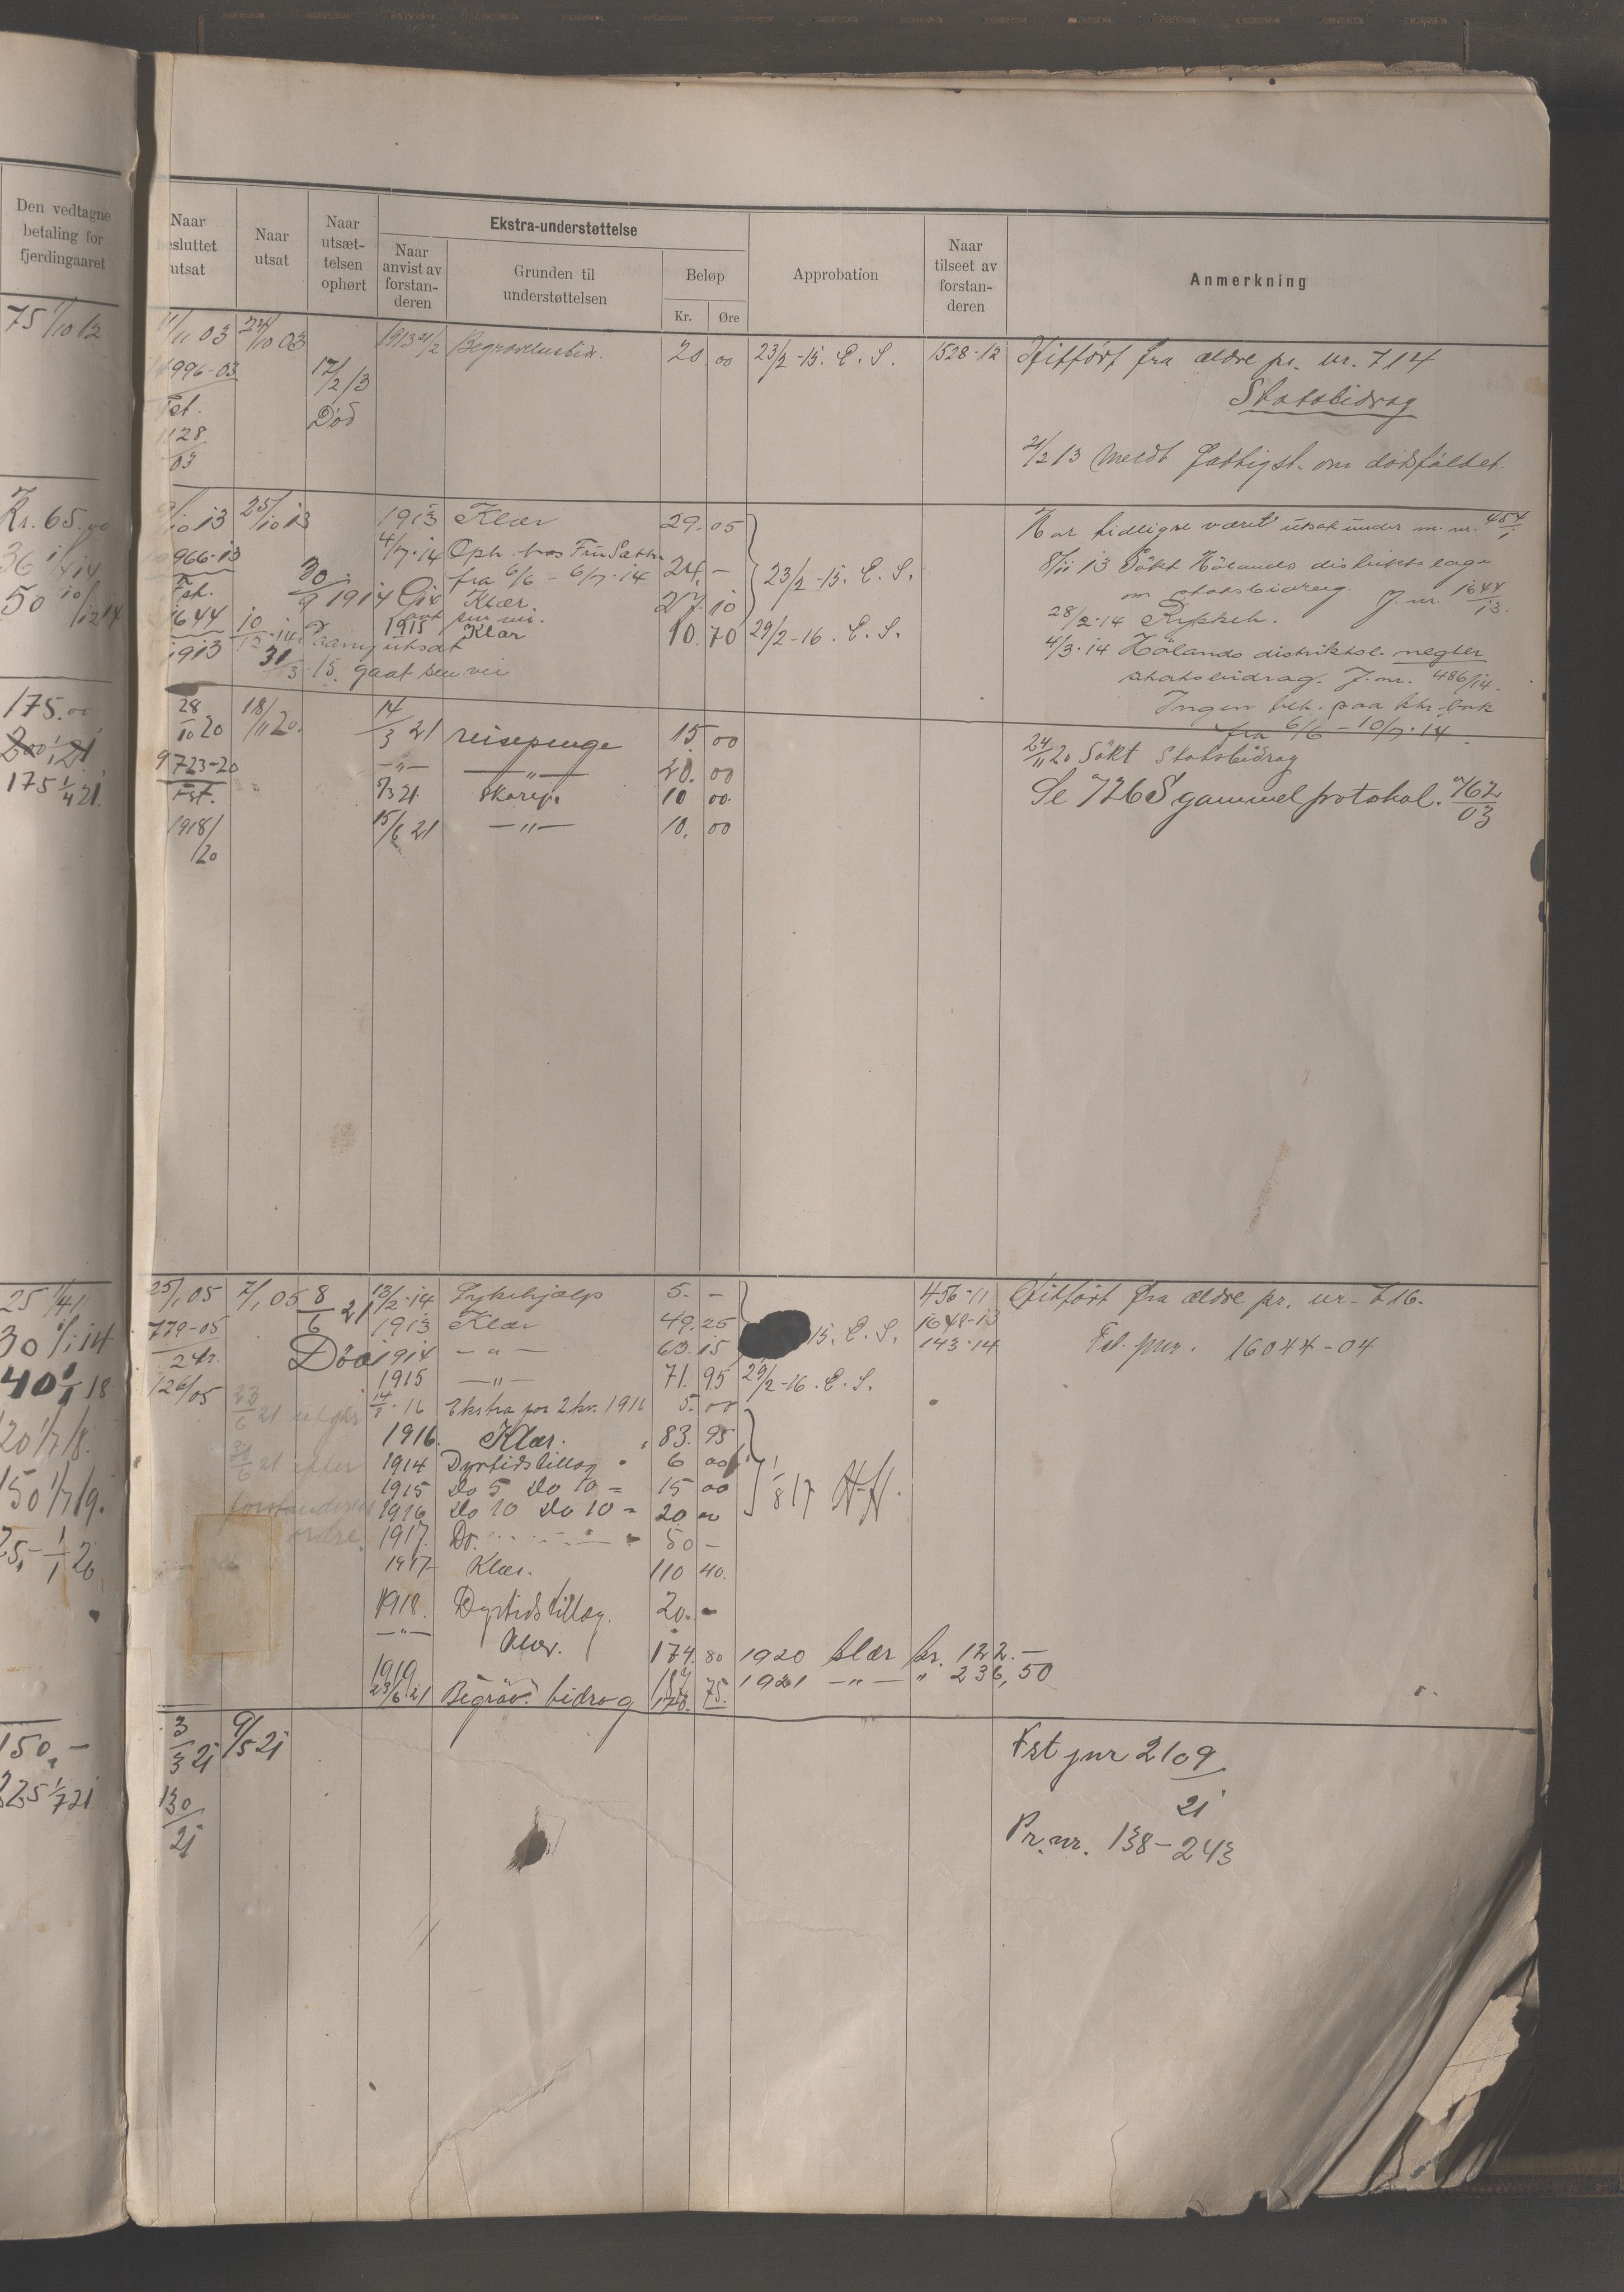 Den vedtagne
betaling for
fjerdingaaret
75 1/10 12
Kr. 65.00
36 1/4 14
50 10/12 14
175.00
200 1/1 21
175 1/4 21.
25 1/4 11
30 1/1 14
40 1/1 18
120 1/7 18.
150 1/7 19.
25,- 1/1 20
150,-
225 1/7 21
Naar
besluttet
utsat
Naar
utsat
Naar
utsæt-
telsen
ophørt
Ekstra-understøttelse
Naar
anvist av
forstan-
deren
Grunden til
understøttelsen
Beløp
Kr.
Øre
Approbation
Naar
tilseet av
forstan-
deren
Anmerkning
11/11 03 24/10 03 1913 21/2 Begravelsesbid. 20.00 23/2-15. E. S. 1528-12 Hitført fra ældre pr. nr. 714
996-03 17/2 13 Statsbidrag
Fst. Död
1128
03 21/2 13 Meldt Fattigst. om dødsfaldet.
10 13 25/10 13 1913 Klær 29.05 Har tidligere været utsat under m. nr. 454
966-13 4/7-14 Oph. hos Fru
fra 6/6 - 6/7-14 24,- 23/2-15. E. S. 8/11 13 Søkt Hølands distriktslæge
Fst. 30/9 1914 Klær. 27.10 om statsbidrag. J. nr. 1644/13.
1644 1915 Klær 10.70 29/2-16. E. S. 28/2-14 Rykket.
1913 10/12-14 utsat 4/3-14 Hølands distriktsl. negter
31/3 15. gaat sin vei statsbidrag. J. nr. 486/14.
Ingen beh. paa
fra 6/6 - 10/7-14
28/10 20 18/11 20. 14/3 21 reisepenge 15 00 24/11 20 Søkt Statsbidrag
9723-20 -"- -"- 20. 00 Se 726 S gammel protokol. 762/03
Fst. 5/3 21. Skorep. 10 00.
1918/20 15/6 21 -"- 10. 00
25/1 05 7/1 05 8/6 21 13/2-14 Sykehjælp 5. - 456-11 Hitført fra ældre pr. nr. 716.
779-05 1913 Klær 49.25 1648-13
2 kr. Död 1914 -"- 63.15 15. E. S. 143-14 Fst. jnr. 16044-04
126/05 1915 -"- 71. 95 29/2-16. E. S.
23/6 21 utgår 14/8-16 Ekstra for 2 kv. 1916 5. 00
1916. Klær. 83. 95
6 21 efter 1914 Dyrtidstillæg 6 00
1915 Do 5 Do 10 = 15 00 1/8 17 H-H.
forstanderens 1916 Do 10 Do 10 = 20 00
ordre. 1917. Do. 50 -
1917- Klær. 110 40.
1918. Dyrtidstillæg. 20. -
-"- Klær. 174. 80 1920 klær kr. 122.-
1919 1921 -"- " 236,50
23/6 21 Begrav. bidrag 75.
3/3 21 9/5 21 Fst jnr 2109
21
130
21 Pr. nr. 138-243